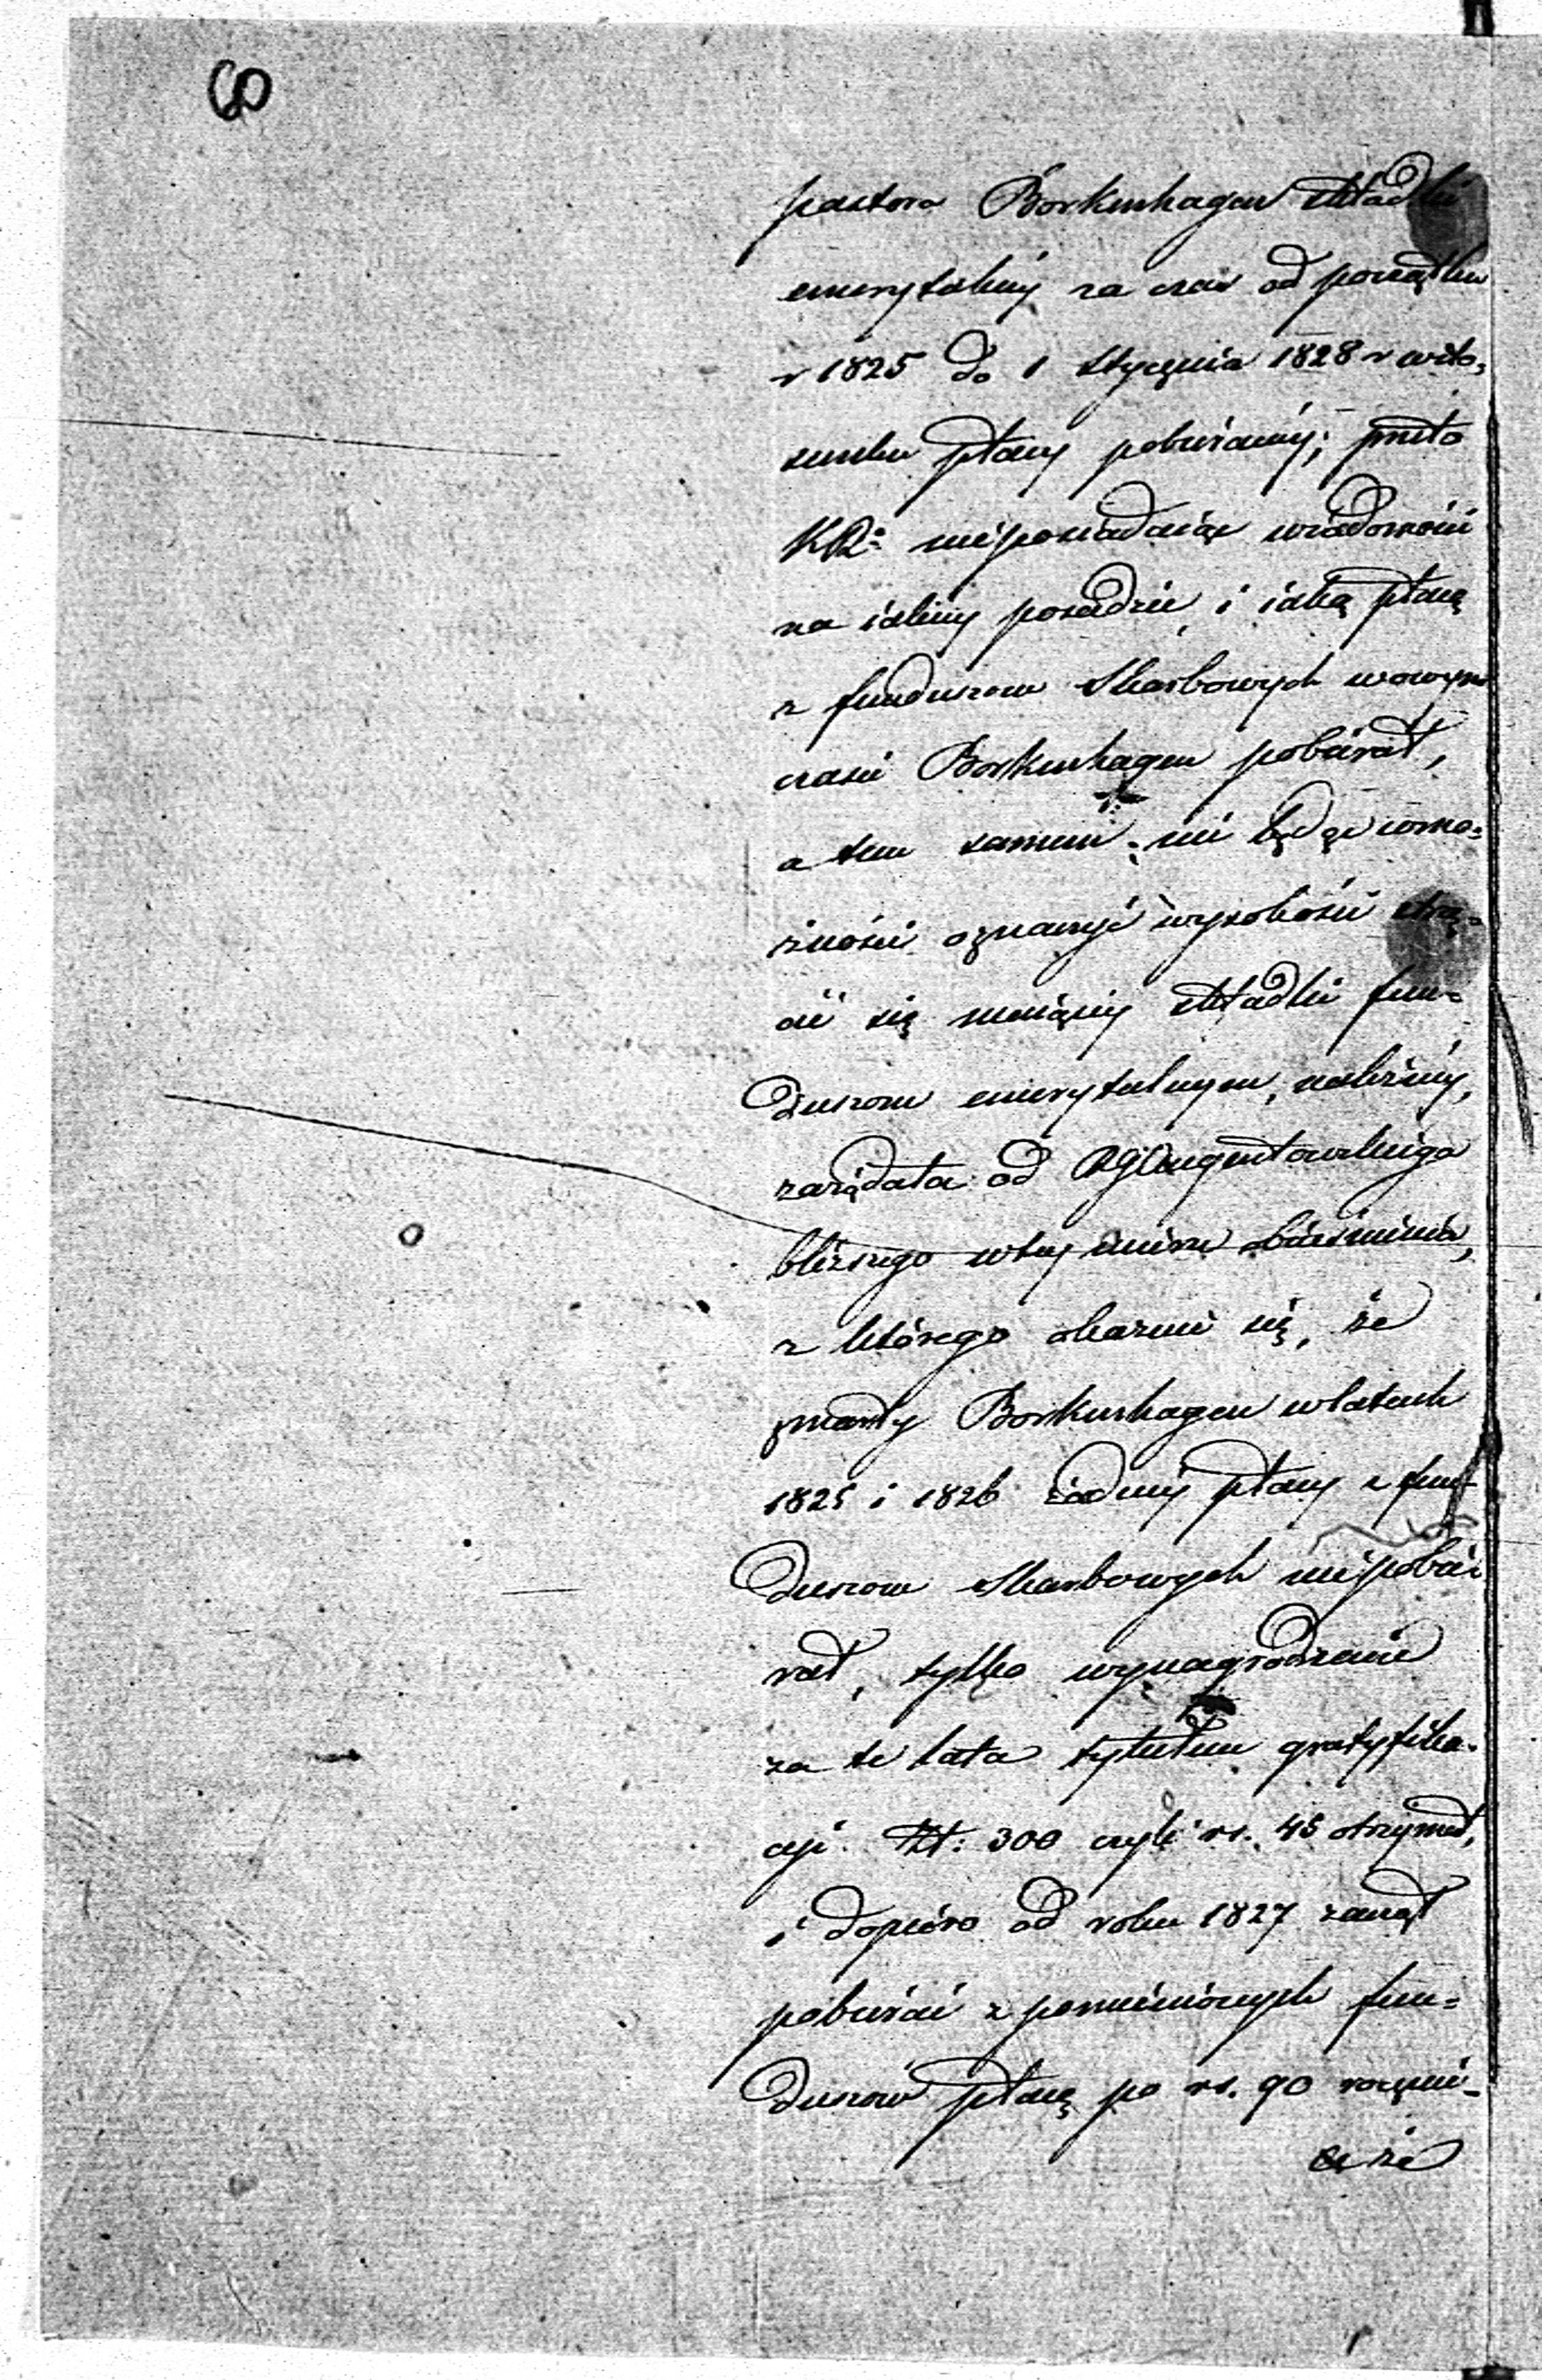 60
pastora Borkenhagen składki
emerytalnéy za czas od początku
r 1825 do 1 stycznia 1828 r wsto,
sunku płacy pobieranéy; przeto
KR: nieposiadaiąc wiadomości
na iakiey posadzie, i iaką płacę
z funduszow skarbowych wowym
czasie Borkenhagen pobierał,
a tem samem, nie będąc wmo=
żności oznaczyć wysokości
się maiącéy składki fun=
duszom emerytalnym, należnéy,
zażądała od RG Augustowskiego
bliższego wtéy mierze obiaśnienia,
z którego okazuie się, że
zmarły Borkenhagen wlatach
1825 i 1826 żadnéy płacy z fun-
duszow skarbowych niepobie-
rał, tylko wynagrodzenie
za te lata tytułem gratyfika-
cyi Zł: 300 czyli rs. 45 otrzymał,
i dopiéro od roku 1827 zaczął
pobierać z pomienionych fun=
duszow płacę po rs. 90 rocznie_
a że